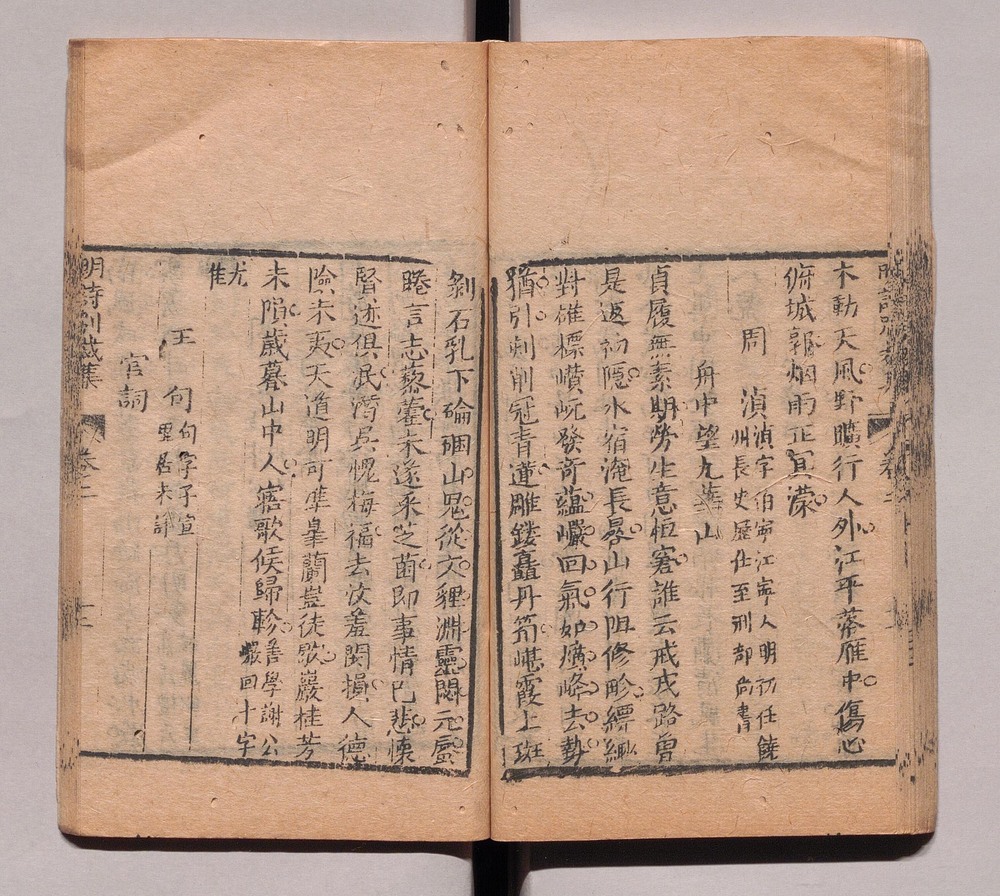 木動天風野曠行人外江平落雁中傷心
俯城郭烟雨正冥濛
周　湞
湞字伯寧江寧人明初任饒
州長史歷仕至刑部尚書
舟中望九華山
貞履無素期勞生意恒窘誰云戒戎路曾
是返初隱水宿淹長晷山行阻修畛縹緲
對雄標巑岏發奇蘊巘回氣如㸌峰去勢
猶引刺削冠青蓮雕鏤矗丹笱嵁霞上班
剝石乳下磆硱山鬼從文貍淵靈閟元蜃
睠言志藜藿未遂采芝菌即事情已悲懷
賢迹俱泯潛吳愧梅福去汶羞閔損人德
險未夷天道明可準皋蘭豈徒歇巖桂芳
未隕歲暮山中人寤歌候歸軫
善學謝公
巖回十字
尤
隹
王　句
句字子宣
里居未詳
宮詞
明詩別裁集
卷二
十三